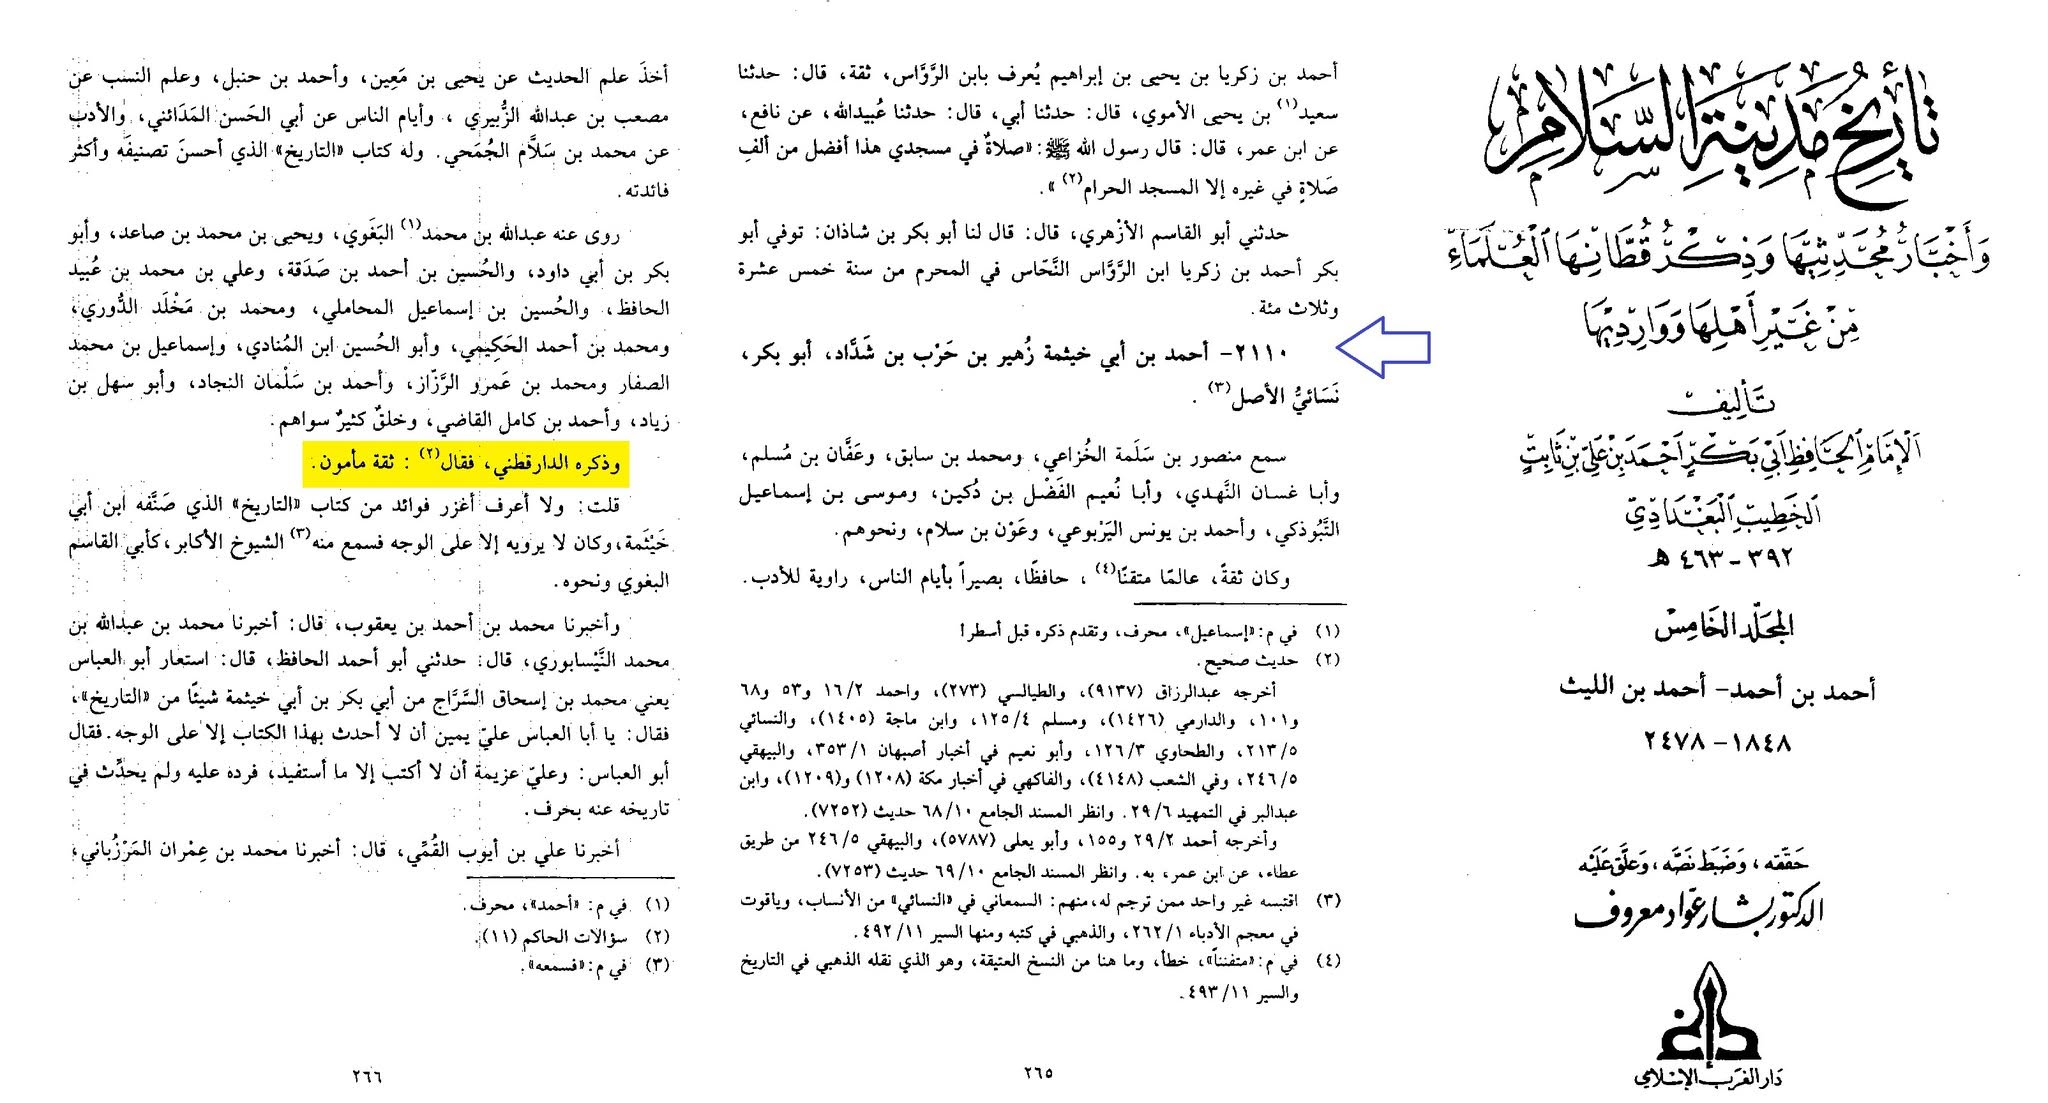 تاريخ مدينة السلام
وأخبار محدثيها وذكر قطانها العلماء
من غير أهلها ووارديها
تأليف
الإمام الحافظ أبي بكر أحمد بن علي بن ثابت
الخطيب البغدادي
٣٩٢ - ٤٦٣ هـ
المجلد الخامس
أحمد بن أحمد - أحمد بن الليث
١٨٤٨ - ٢٤٧٨
حققه، وضبط نصه، وعلق عليه
الدكتور بشار عواد معروف
دار الغرب الإسلامي
أحمد بن زكريا بن يحيى بن إبراهيم يُعرف بابن الرَّوَّاس، ثقة، قال: حدثنا
سعيد(١) بن يحيى الأموي، قال: حدثنا أبي، قال: حدثنا عُبيدالله، عن نافع،
عن ابن عمر، قال: قال رسول الله ﷺ: «صلاةٌ في مسجدي هذا أفضل من ألفِ
صَلاةٍ في غيره إلا المسجد الحرام(٢)».
حدثني أبو القاسم الأزْهري، قال: قال لنا أبو بكر بن شاذان: توفي أبو
بكر أحمد بن زكريا ابن الرَّوَّاس النَّحّاس في المحرم من سنة خمس عشرة
وثلاث مئة.
٢١١٠- أحمد بن أبي خيثمة زُهير بن حَرْب بن شَدَّاد، أبو بكر،
نَسَائيُّ الأصل(٣).
سمع منصور بن سَلَمة الخُزاعي، ومحمد بن سابق، وعَفَّان بن مُسلم،
وأبا غسان النَّهدي، وأبا نُعيم الفَضْل بن دُكين، وموسى بن إسماعيل
التَّبُوذكي، وأحمد بن يونس اليَرْبوعي، وعَوْن بن سلام، ونحوهم.
وكان ثقةً، عالمًا متقنًا(٤)، حافظًا، بصيراً بأيام الناس، راوية للأدب.
(١) في م: «إسماعيل»، محرف، وتقدم ذكره قبل أسطر!
(٢) حديث صحيح.
أخرجه عبدالرزاق (٩١٣٧)، والطيالسي (٢٧٣)، واحمد ١٦/٢ و٥٣ و٦٨
و١٠١، والدارمي (١٤٢٦)، ومسلم ١٢٥/٤، وابن ماجة (١٤٠٥)، والنسائي
٢١٣/٥، والطحاوي ١٢٦/٣، وأبو نعيم في أخبار أصبهان ٣٥٣/١، والبيهقي
٢٤٦/٥، وفي الشعب (٤١٤٨)، والفاكهي في أخبار مكة (١٢٠٨) و(١٢٠٩)، وابن
عبدالبر في التمهيد ٢٩/٦. وانظر المسند الجامع ٦٨/١٠ حديث (٧٢٥٢).
وأخرجه أحمد ٢٩/٢ و١٥٥، وأبو يعلى (٥٧٨٧)، والبيهقي ٢٤٦/٥ من طريق
عطاء، عن ابن عمر، به. وانظر المسند الجامع ٦٩/١٠ حديث (٧٢٥٣).
(٣) اقتبسه غير واحد ممن ترجم له، منهم: السمعاني في «النسائي» من الأنساب، وياقوت
في معجم الأدباء ٢٦٢/١، والذهبي في كتبه ومنها السير ٤٩٢/١١.
(٤) في م: «متفنناً»، خطأ، وما هنا من النسخ العتيقة، وهو الذي نقله الذهبي في التاريخ
والسير ٤٩٣/١١.
٢٦٥
أخذَ علم الحديث عن يحيى بن مَعِين، وأحمد بن حنبل، وعلم النسب عن
مصعب بن عبدالله الزُّبيري، وأيام الناس عن أبي الحَسن المَدَائني، والأدب
عن محمد بن سَلاَّم الجُمَحي. وله كتاب «التاريخ» الذي أحسنَ تصنيفَه وأكثر
فائدته.
روى عنه عبدالله بن محمد(١) البَغَوي، ويحيى بن محمد بن صاعد، وأبو
بكر بن أبي داود، والحُسين بن أحمد بن صَدَقة، وعلي بن محمد بن عُبيد
الحافظ، والحُسين بن إسماعيل المحاملي، ومحمد بن مَخْلَد الدُّوري،
ومحمد بن أحمد الحَكِيمي، وأبو الحُسين ابن المُنادي، وإسماعيل بن محمد
الصفار ومحمد بن عَمرو الرَّزّاز، وأحمد بن سَلْمان النجاد، وأبو سهل بن
زياد، وأحمد بن كامل القاضي، وخلقٌ كثيرٌ سواهم.
وذكره الدارقطني، فقال(٢): ثقة مأمون.
قلت: ولا أعرف أغزر فوائد من كتاب «التاريخ» الذي صَنَّفه ابن أبي
خَيْثَمة، وكان لا يرويه إلا على الوجه فسمع منه(٣) الشيوخ الأكابر، كأبي القاسم
البغوي ونحوه.
وأخبرنا محمد بن أحمد بن يعقوب، قال: أخبرنا محمد بن عبدالله بن
محمد النَّيْسابوري، قال: حدثني أبو أحمد الحافظ، قال: استعار أبو العباس
يعني محمد بن إسحاق السَّرَّاج من أبي بكر بن أبي خيثمة شيئًا من «التاريخ»،
فقال: يا أبا العباس عليّ يمين أن لا أحدث بهذا الكتاب إلا على الوجه. فقال
أبو العباس: وعليّ عزيمة أن لا أكتب إلا ما أستفيد، فرده عليه ولم يحدِّث في
تاريخه عنه بحرف.
أخبرنا علي بن أيوب القُمِّي، قال: أخبرنا محمد بن عِمْران المَرْزُباني،
(١) في م: «أحمد»، محرف.
(٢) سؤالات الحاكم (١١).
(٣) في م: «فسمعه».
٢٦٦